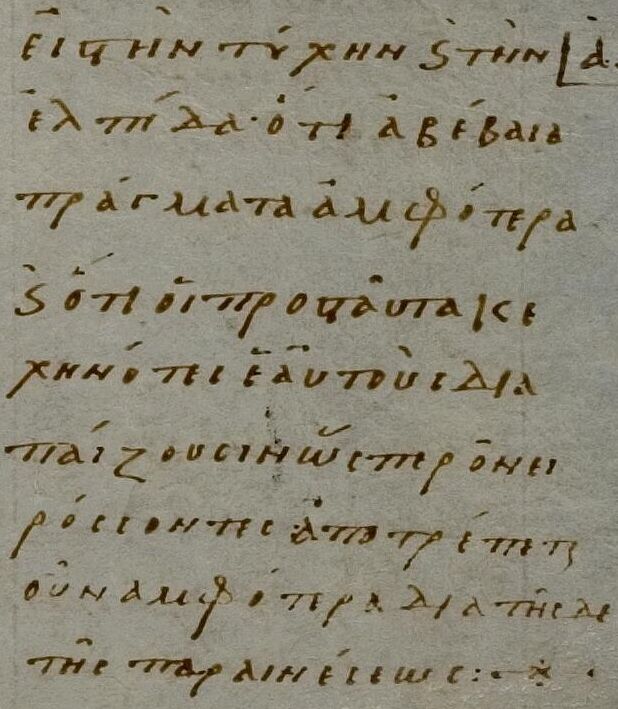 εἰς τὴν τύχην ϗ τὴν ἀ·
ἐλπίδα· ὅτι ἀβέβαια
πράγματα ἀμφότερα
ϗ ὅτι οἱ πρὸς ταῦτα κε
χηνότες ἑαυτοὺς δια
παίζουσιν ὥσπερ ὀνει
ρόσσοντες ἀποτρέπει
οὖν ἀμφότερα διὰ τῆσδε
τῆς παραινέσεως:·